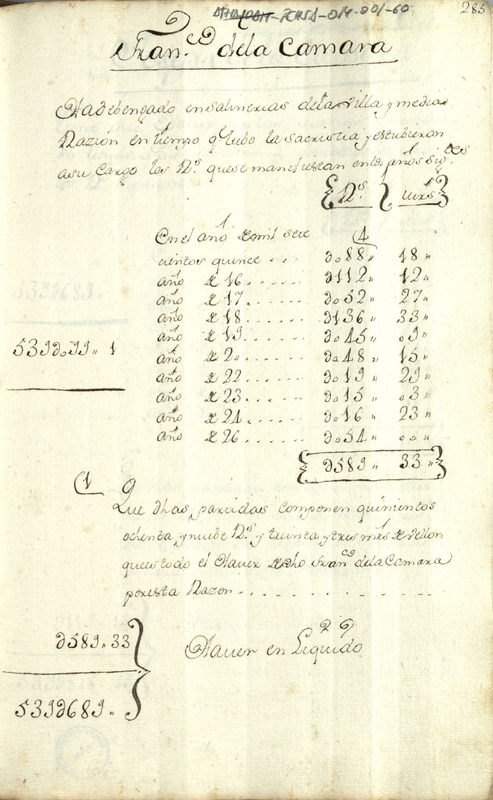 285
PCHSA-014-001-60
Fran.co dela Camara
Ha debengado ensalinerias delavilla y medias
Razión en tiempo q.e tubo la sacristia y estubieron
asu Cargo los Rs. quese manifiestan enlos años sig.tes
Rs. mrs
En el año de mil sete
cientos quince . . . d088 „ 18 „
año de 16 . . . . . . d112 „ 12 „
año de 17 . . . . . . d052 „ 27 „
año de 18 . . . . . . d136 „ 33 „
año de 19 . . . . . . d045 „ 09 „
539d099 „ 1
año de 20 . . . . . . d048 „ 15 „
año de 22 . . . . . . d019 „ 29 „
año de 23 . . . . . . d015 „ 03 „
año de 24 . . . . . . d016 „ 23 „
año de 26 . . . . . . d054 „ 00 „
d589 „ 33 „
Que dhas partidas componen quinientos
ochenta y nuebe Rs. y treinta y tres mrs de vellon
que es todo el Hauer de dho Fran.co dela Camara
por esta Razon . . . . . . . . . . .
d589 „ 33
Hauer en Liquido
539d689 „